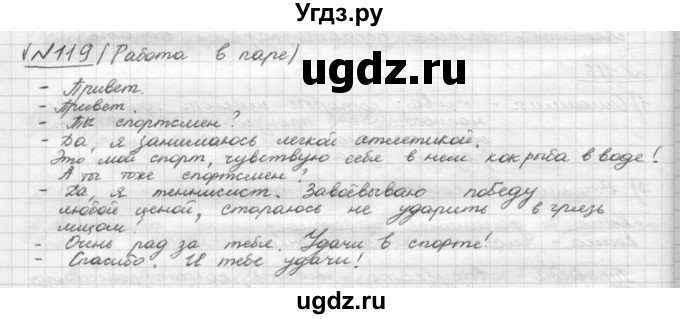 Угдз.ру
√N119 (Работа в паре)
ugdz.ru
- Привет.
- Привет.
- Ты спортсмен?
- Да, я занимаюсь легкой атлетикой.
Это мой спорт, чувствую себя в нем как рыба в воде!
А ты тоже спортсмен?
- Да, я теннисист. Завоёвываю победу
любой ценой, стараюсь не ударить в грязь
лицом!
- Очинь рад за тебя. Удачи в спорте!
- Спасибо. И тебе удачи!
ugdz.ru